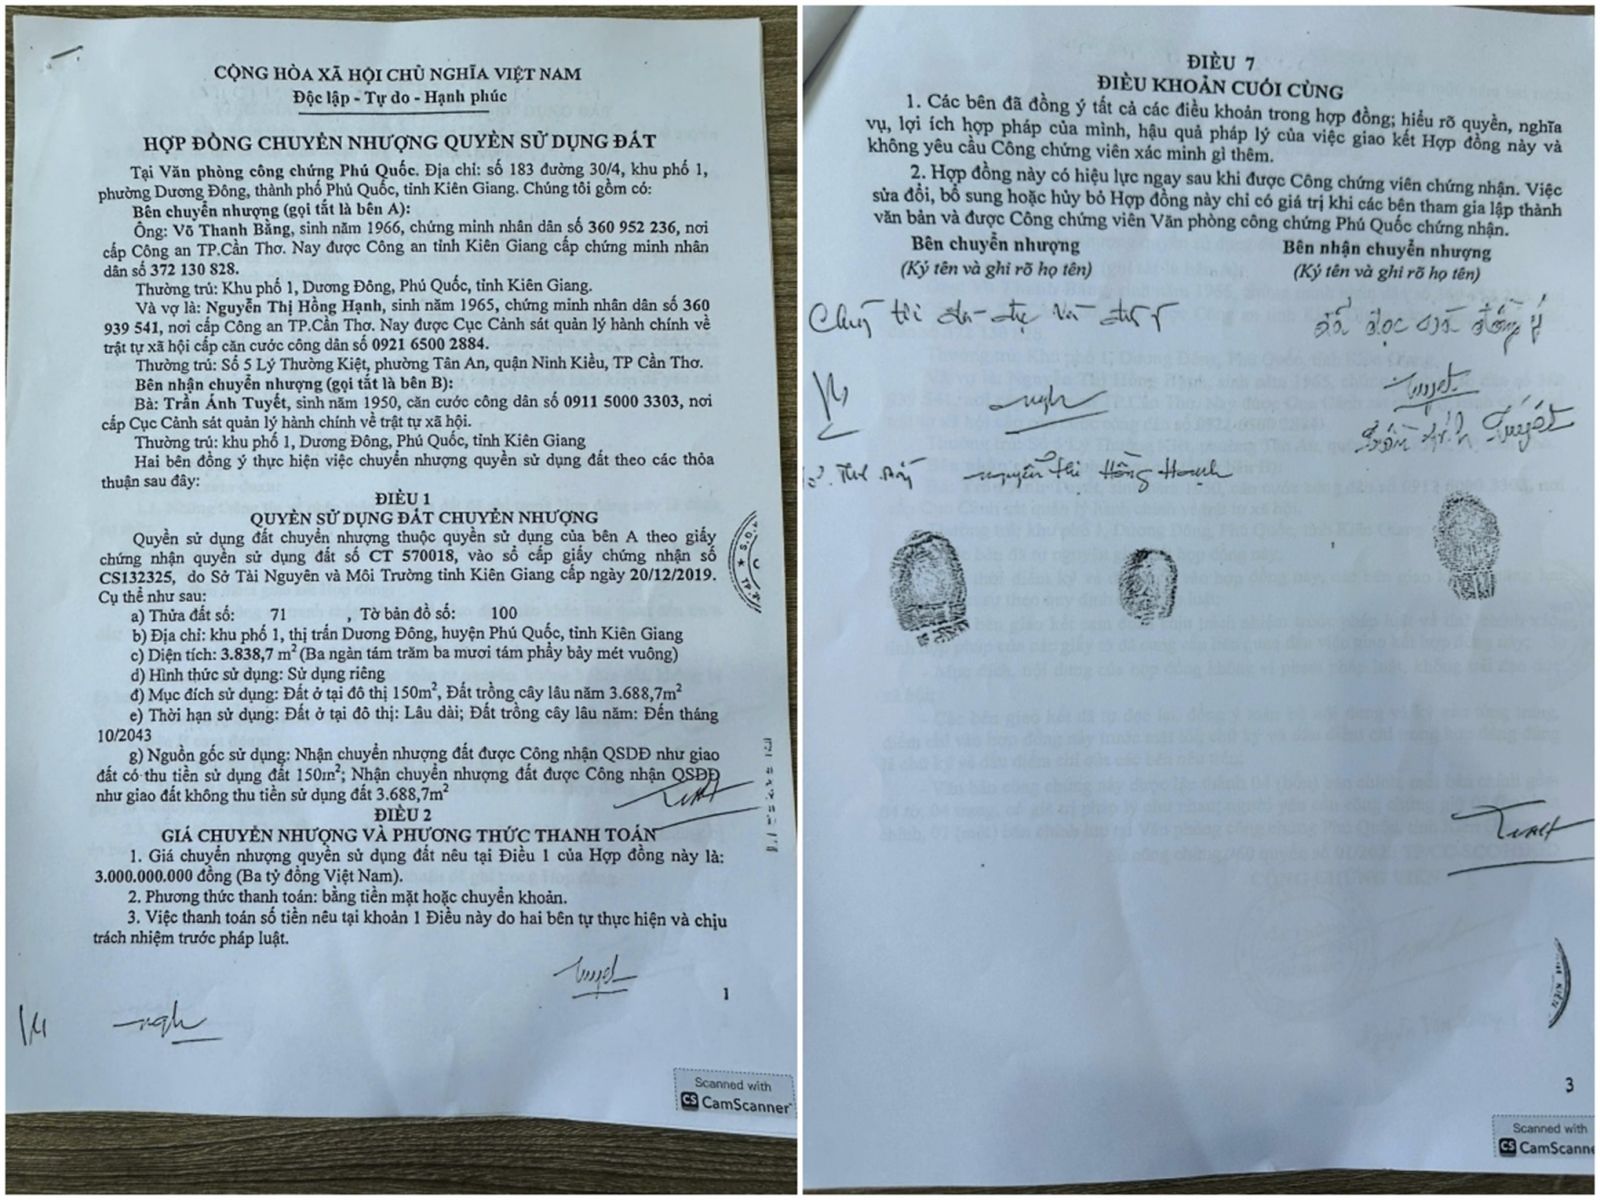 CỘNG HÒA XÃ HỘI CHỦ NGHĨA VIỆT NAM
Độc lập - Tự do - Hạnh phúc
HỢP ĐỒNG CHUYỂN NHƯỢNG QUYỀN SỬ DỤNG ĐẤT
Tại Văn phòng công chứng Phú Quốc. Địa chỉ: số 183 đường 30/4, khu phố 1,
phường Dương Đông, thành phố Phú Quốc, tỉnh Kiên Giang. Chúng tôi gồm có:
Bên chuyển nhượng (gọi tắt là bên A):
Ông: Võ Thanh Bằng, sinh năm 1966, chứng minh nhân dân số 360 952 236, nơi
cấp Công an TP.Cần Thơ. Nay được Công an tỉnh Kiên Giang cấp chứng minh nhân
dân số 372 130 828.
Thường trú: Khu phố 1, Dương Đông, Phú Quốc, tỉnh Kiên Giang.
Và vợ là: Nguyễn Thị Hồng Hạnh, sinh năm 1965, chứng minh nhân dân số 360
939 541, nơi cấp Công an TP.Cần Thơ. Nay được Cục Cảnh sát quản lý hành chính về
trật tự xã hội cấp căn cước công dân số 0921 6500 2884.
Thường trú: Số 5 Lý Thường Kiệt, phường Tân An, quận Ninh Kiều, TP Cần Thơ.
Bên nhận chuyển nhượng (gọi tắt là bên B):
Bà: Trần Ánh Tuyết, sinh năm 1950, căn cước công dân số 0911 5000 3303, nơi
cấp Cục Cảnh sát quản lý hành chính về trật tự xã hội.
Thường trú: khu phố 1, Dương Đông, Phú Quốc, tỉnh Kiên Giang
Hai bên đồng ý thực hiện việc chuyển nhượng quyền sử dụng đất theo các thỏa
thuận sau đây:
ĐIỀU 1
QUYỀN SỬ DỤNG ĐẤT CHUYỂN NHƯỢNG
Quyền sử dụng đất chuyển nhượng thuộc quyền sử dụng của bên A theo giấy
chứng nhận quyền sử dụng đất số CT 570018, vào sổ cấp giấy chứng nhận số
CS132325, do Sở Tài Nguyên và Môi Trường tỉnh Kiên Giang cấp ngày 20/12/2019.
Cụ thể như sau:
a) Thửa đất số: 71 , Tờ bản đồ số: 100
b) Địa chỉ: khu phố 1, thị trấn Dương Đông, huyện Phú Quốc, tỉnh Kiên Giang
c) Diện tích: 3.838,7 m² (Ba ngàn tám trăm ba mươi tám phẩy bảy mét vuông)
d) Hình thức sử dụng: Sử dụng riêng
đ) Mục đích sử dụng: Đất ở tại đô thị 150m², Đất trồng cây lâu năm 3.688,7m²
e) Thời hạn sử dụng: Đất ở tại đô thị: Lâu dài; Đất trồng cây lâu năm: Đến tháng
10/2043
g) Nguồn gốc sử dụng: Nhận chuyển nhượng đất được Công nhận QSDĐ như giao
đất có thu tiền sử dụng đất 150m²; Nhận chuyển nhượng đất được Công nhận QSDĐ
như giao đất không thu tiền sử dụng đất 3.688,7m²
ĐIỀU 2
GIÁ CHUYỂN NHƯỢNG VÀ PHƯƠNG THỨC THANH TOÁN
1. Giá chuyển nhượng quyền sử dụng đất nêu tại Điều 1 của Hợp đồng này là:
3.000.000.000 đồng (Ba tỷ đồng Việt Nam).
2. Phương thức thanh toán: bằng tiền mặt hoặc chuyển khoản.
3. Việc thanh toán số tiền nêu tại khoản 1 Điều này do hai bên tự thực hiện và chịu
trách nhiệm trước pháp luật.
Tuyet
1
Scanned with
CS CamScanner
ĐIỀU 7
ĐIỀU KHOẢN CUỐI CÙNG
1. Các bên đã đồng ý tất cả các điều khoản trong hợp đồng; hiểu rõ quyền, nghĩa
vụ, lợi ích hợp pháp của mình, hậu quả pháp lý của việc giao kết Hợp đồng này và
không yêu cầu Công chứng viên xác minh gì thêm.
2. Hợp đồng này có hiệu lực ngay sau khi được Công chứng viên chứng nhận. Việc
sửa đổi, bổ sung hoặc hủy bỏ Hợp đồng này chỉ có giá trị khi các bên tham gia lập thành
văn bản và được Công chứng viên Văn phòng công chứng Phú Quốc chứng nhận.
Bên chuyển nhượng Bên nhận chuyển nhượng
(Ký tên và ghi rõ họ tên) (Ký tên và ghi rõ họ tên)
Chúng tôi đã đọc và đồng ý đã đọc và đồng ý
Tuyet
Trần Ánh Tuyết
Nguyễn Thị Hồng Hạnh
3
Scanned with
CS CamScanne